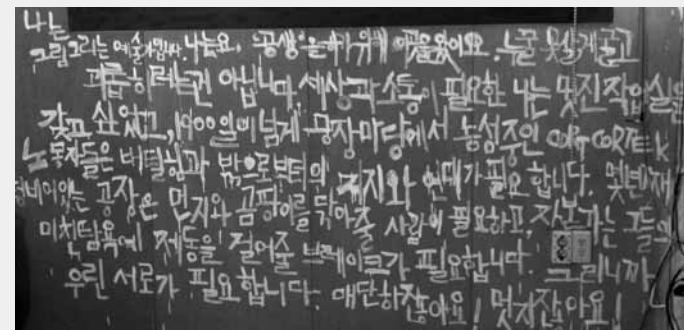 나는
그림그리는 예술가입니다. 나는요, 공생을하기위해 이곳을왔어요. 누굴 못살게굴고
괴롭히려는건 아닙니다. 세상과 소통이 필요한 나는 멋진작업실을
갖고 싶었고, 1900일이 넘게 공장마당에서 농성중인 CORT CORTEK
노동자들은 버틸힘과 밖으로부터의 지지와 연대가 필요 합니다. 몇년째
텅비어있는 공장은 먼지와 곰팡이를 닦아줄 사람이 필요하고, 자본가는 그들의
미친탐욕에 제동을 걸어줄 브레이크가 필요합니다. 그러니까
우린 서로가 필요합니다. 대단하잖아요! 멋지잖아요!